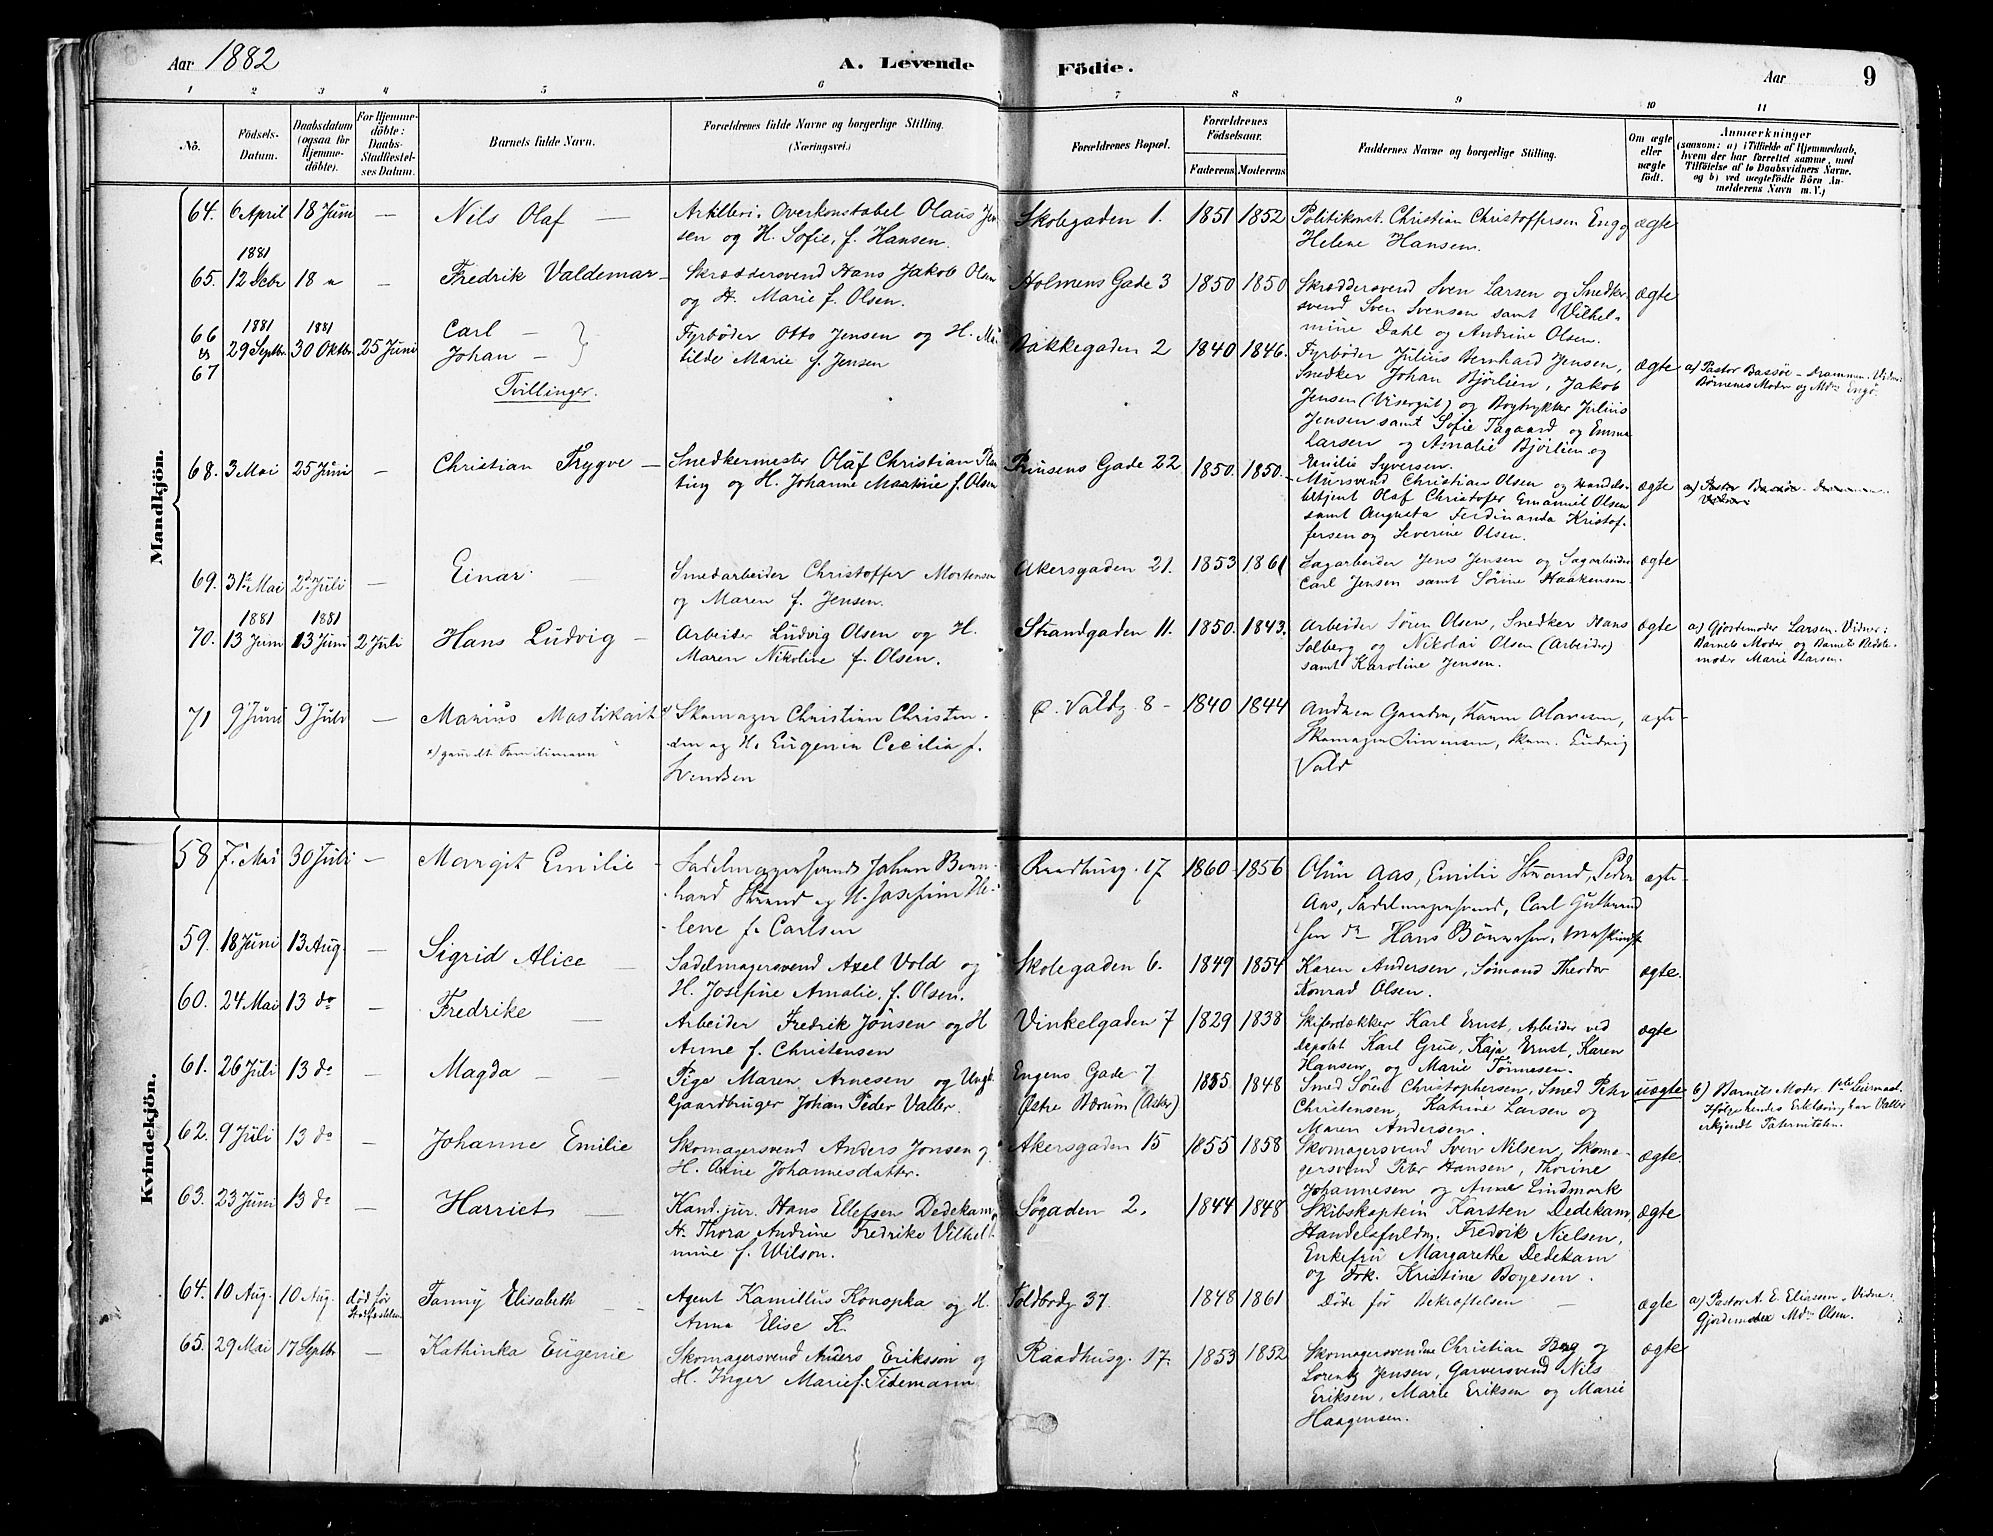 Aar 1882
A. Levende
Födte.
Aar
9
1 2 3 4 5 6 7 8 9 10 11
No.
Födsels-
Datum.
Daabsdatum
(ogsaa for
Hjemme-
döbte).
For Hjemme-
döbte:
Daabs-
Stadfæstel-
ses Datum.
Barnets fulde Navn.
Forældrenes fulde Navne og borgerlige Stilling.
(Næringsvei.)
Forældrenes Bopæl.
Forældrenes
Födselsaar.
Faderens Moderens
Faddernes Navne og borgerlige Stilling.
Om ægte
eller
uægte
födt.
Anmærkninger
(saasom: a) i Tilfælde af Hjemmedaab,
hvem der har forrettet samme, med
Tilföielse af to Daabsvidners Navne,
og b) ved uægtefödte Börn An-
melderens Navn m. V.)
Mandkjön.
64. 6 April 18 Juni — Nils Olaf —
Artilleri. Overkonstabel Olaus Jen
sen og H. Sofie, f. Hansen.
Skolegaden 1. 1851 1852
Politikonst. Christian Christoffersen Eng og
Helene Hansen.
ægte
1881
65. 12 Decbr 18 " — Fredrik Valdemar —
Skræddersvend Hans Jakob Olsen
og H. Marie f. Olsen.
Holmens Gade 3 1850 1850
Skræddersvend Sven Larsen og Snedker
svend Sven Svensen samt Vilhel-
mine Dahl og Andrine Olsen.
ægte
66 & 67
1881 29 Septbr 1881 30 Oktbr 25 Juni
Carl —
Johan —
Tvillinger.
Fyrbøder Otto Jensen og H. Ma
tilde Marie f. Jensen
Bakkegaden 2 1840 1846.
Fyrbøder Julius Bernhard Jensen,
Snedker Johan Bjørlien, Jakob
Jensen (Visergut) og Bogtrykker Julius
Jensen samt Sofie Tagaard og Emma
Larsen og Amalie Bjørlien og
Emilie Syversen.
ægte
a) Pastor Bassøe — Drammen. Vidner:
Børnenes Moder og Md^m Engø.
68. 3 Mai 25 Juni — Christian Trygve —
Snedkermester Olaf Christian Plan
ting og H. Johanne Martine f. Olsen
Prinsens Gade 22 1850. 1850.
Mursvend Christian Olsen og Handels-
betjent Olaf Christofer Emanuel Olsen
samt Augusta Ferdinanda Kristof-
fersen og Severine Olsen.
ægte
a) Pastor Bassøe. Drammen.
Vidner:
69. 31te Mai 2d Juli — Einar.
Smedarbeider Christoffer Mortensen
og Maren f. Jensen.
Akersgaden 21. 1853 1861
Sagarbeider Jens Jensen og Sagarbeider
Carl Jensen samt Sørine Haakensen.
ægte
1881 1881
70. 13 Juni 13 Juni 2 Juli Hans Ludvig —
Arbeider Ludvig Olsen og H.
Maren Nikoline f. Olsen.
Strandgaden 11. 1850. 1843.
Arbeider Søren Olsen, Snedker Hans
Solberg og Nikolai Olsen (Arbeider)
samt Karoline Jensen.
ægte
a) Gjordemoder Larsen. Vidner:
Barnets Moder og Barnets Bedste-
moder Marie Larsen.
71 9 Juni 9 Juli — Marius Mastikait x)
x) Familienavn
Skomager Christian Christen-
sen og H. Eugenia Cecilia f.
Svendsen
Ø. Voldg. 8 — 1840 1844
Skomager Simensen, skom. Ludvig
Vold
ægte
Kvindekjön.
58 7. Mai 30 Juli — Margit Emilie —
Sadelmagersvend Johan Bern-
hard Strand og H. Josefine He-
lene f. Carlsen
Raadhusg. 17 1860 1856
Olin Aas, Emilie Strand, Peder
Aas, Sadelmagersvend, Carl Gulbrand
sen do Hans Bönnesen, Maskinist
ægte
59. 18 Juni 13 Aug. — Sigrid Alice —
Sadelmagersvend Axel Vold og
H. Josefine Amalie, f. Olsen.
Skolegaden 6. 1849 1854
Karen Andersen, Sømand Theodor
Konrad Olsen.
ægte.
60. 24 Mai 13 do — Fredrike —
Arbeider Fredrik Jönsen og H
Anne f. Christensen
Vinkelgaden 7 1829 1838
Skiferdækker Karl Ernst, Arbeider ved
Depotet Karl Grue, Kaja Ernst, Karen
Hansen og Marie Tönnesen.
ægte
61. 26 Juli 13 do — Magda —
Pige Maren Arnesen og Ungk.
Gaardbruger Johan Peder Valler.
Engens Gade 7
Østre Bærum (Asker)
1855 1848
Smed Sören Christophersen, Smed Peter
Christensen, Katrine Larsen og
Maren Andersen.
uægte
b) Barnets Moder.
Ifølge hendes Erklæring har Valler
erkjendt Paterniteten.
62. 9 Juli 13 do — Johanne Emilie
Skomagersvend Anders Jonsen og
H. Anne Johannesdatter.
Akersgaden 15 1855 1858
Skomagersvend Sven Nilsen, Skoma-
gersvend Peter Hansen, Thorine
Johannesen og Anne Lindmork
ægte.
63. 23 Juni 13 do — Harriet —
Kand. jur. Hans Ellefsen Dedekam,
H. Thora Andrine Fredrike Vilhel-
mine f. Wilson.
Søgaden 2. 1844 1848
Skibskaptein Karsten Dedekam,
Handelsfuldm. Fredrik Nielsen,
Enkefru Margarethe Dedekam
og Frk. Kristine Boyesen.
ægte
64. 10 Aug. 10 Aug. død før Stadfæstelsen Fanny Elisabeth —
Agent Kamillus Konopka og H.
Anna Elise K.
Toldbodg. 37. 1848 1861
Døde før Bekræftelsen —
ægte
a) Pastor A. E. Eliassen. Vidne:
Gjordemoder Md^m Olsen.
65. 29 Mai 17 Septbr — Kathinka Eugenie
Skomagersvend Anders Eriksson og
H. Inger Marie f. Tidemann
Raadhusg. 17. 1853 1852
Skomagersvendene Christian Berg og
Lorentz Jensen, Garversvend Nils
Eriksen, Marie Eriksen og Marie
Haagensen.
ægte